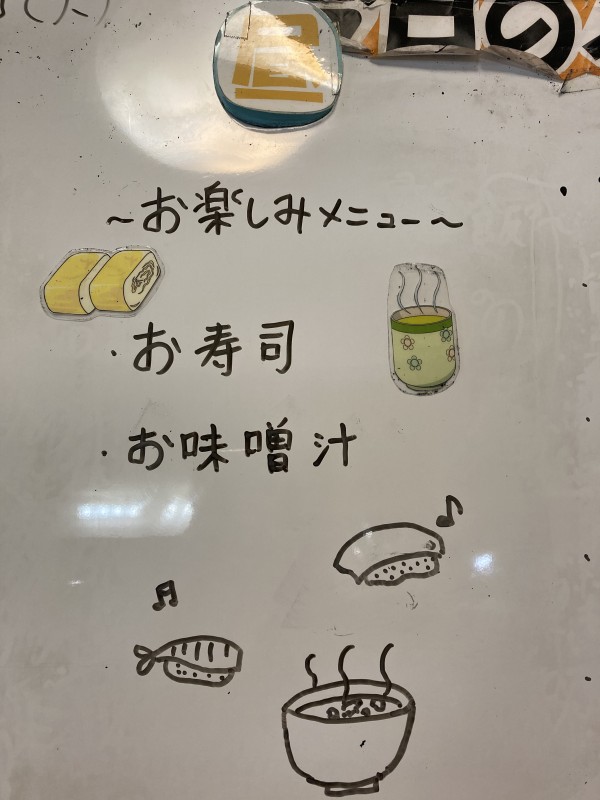 (火)
昼
日の
~お楽しみメニュー~
・お寿司
・お味噌汁